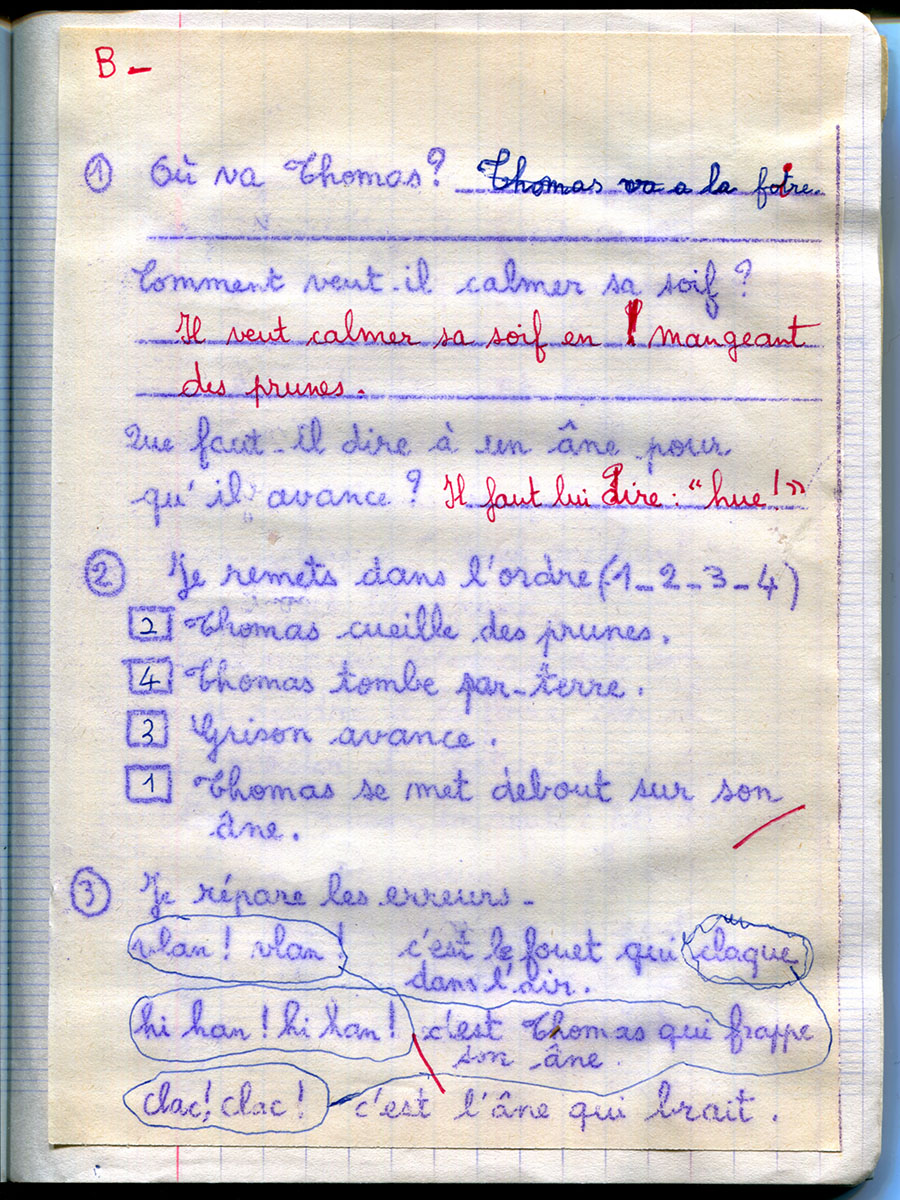 B -
① Où va Thomas? Thomas va a la foire.
Comment veut-il calmer sa soif ?
Il veut calmer sa soif en mangeant
des prunes.
Que faut-il dire à un âne pour
qu'il avance ? Il faut lui dire : "hue !"
② Je remets dans l'ordre (1_2_3_4)
2 Thomas cueille des prunes.
4 Thomas tombe par-terre.
3 Grison avance.
1 Thomas se met debout sur son
âne.
③ Je répare les erreurs -
vlan ! vlan ! c'est le fouet qui claque
dans l'air.
hi han ! hi han ! c'est Thomas qui frappe
son âne.
clac ! clac ! c'est l'âne qui brait.